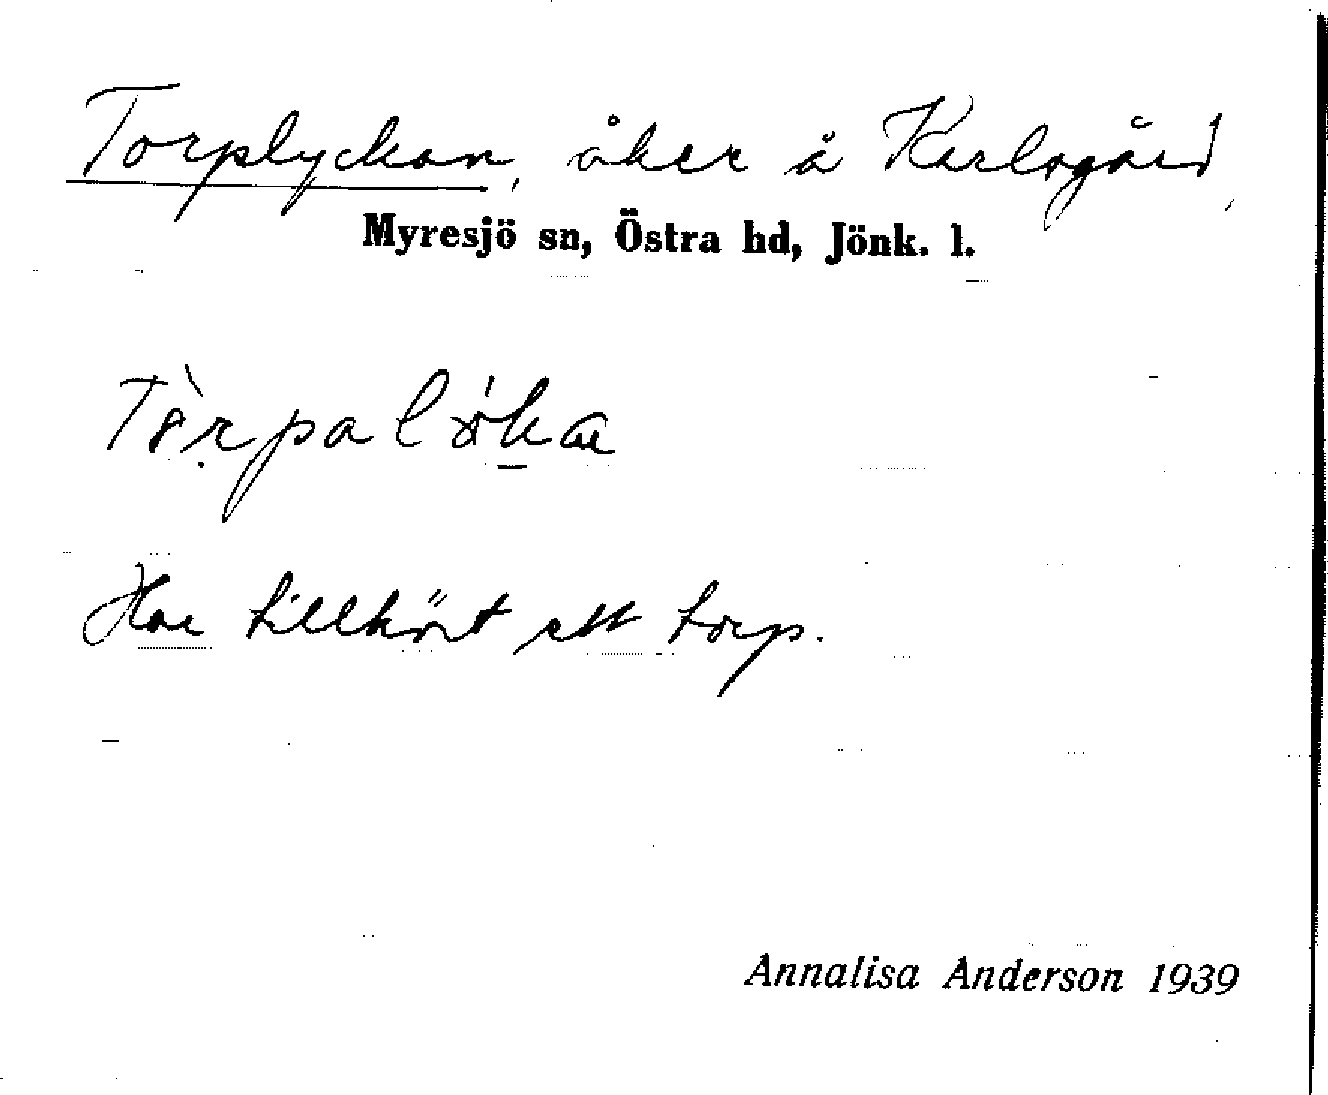 Torplyckan, åker å Karlsgård,
Myresjö sn, Östra hd, Jönk. l.
Har tillhört ett torp.
Annalisa Anderson 1939